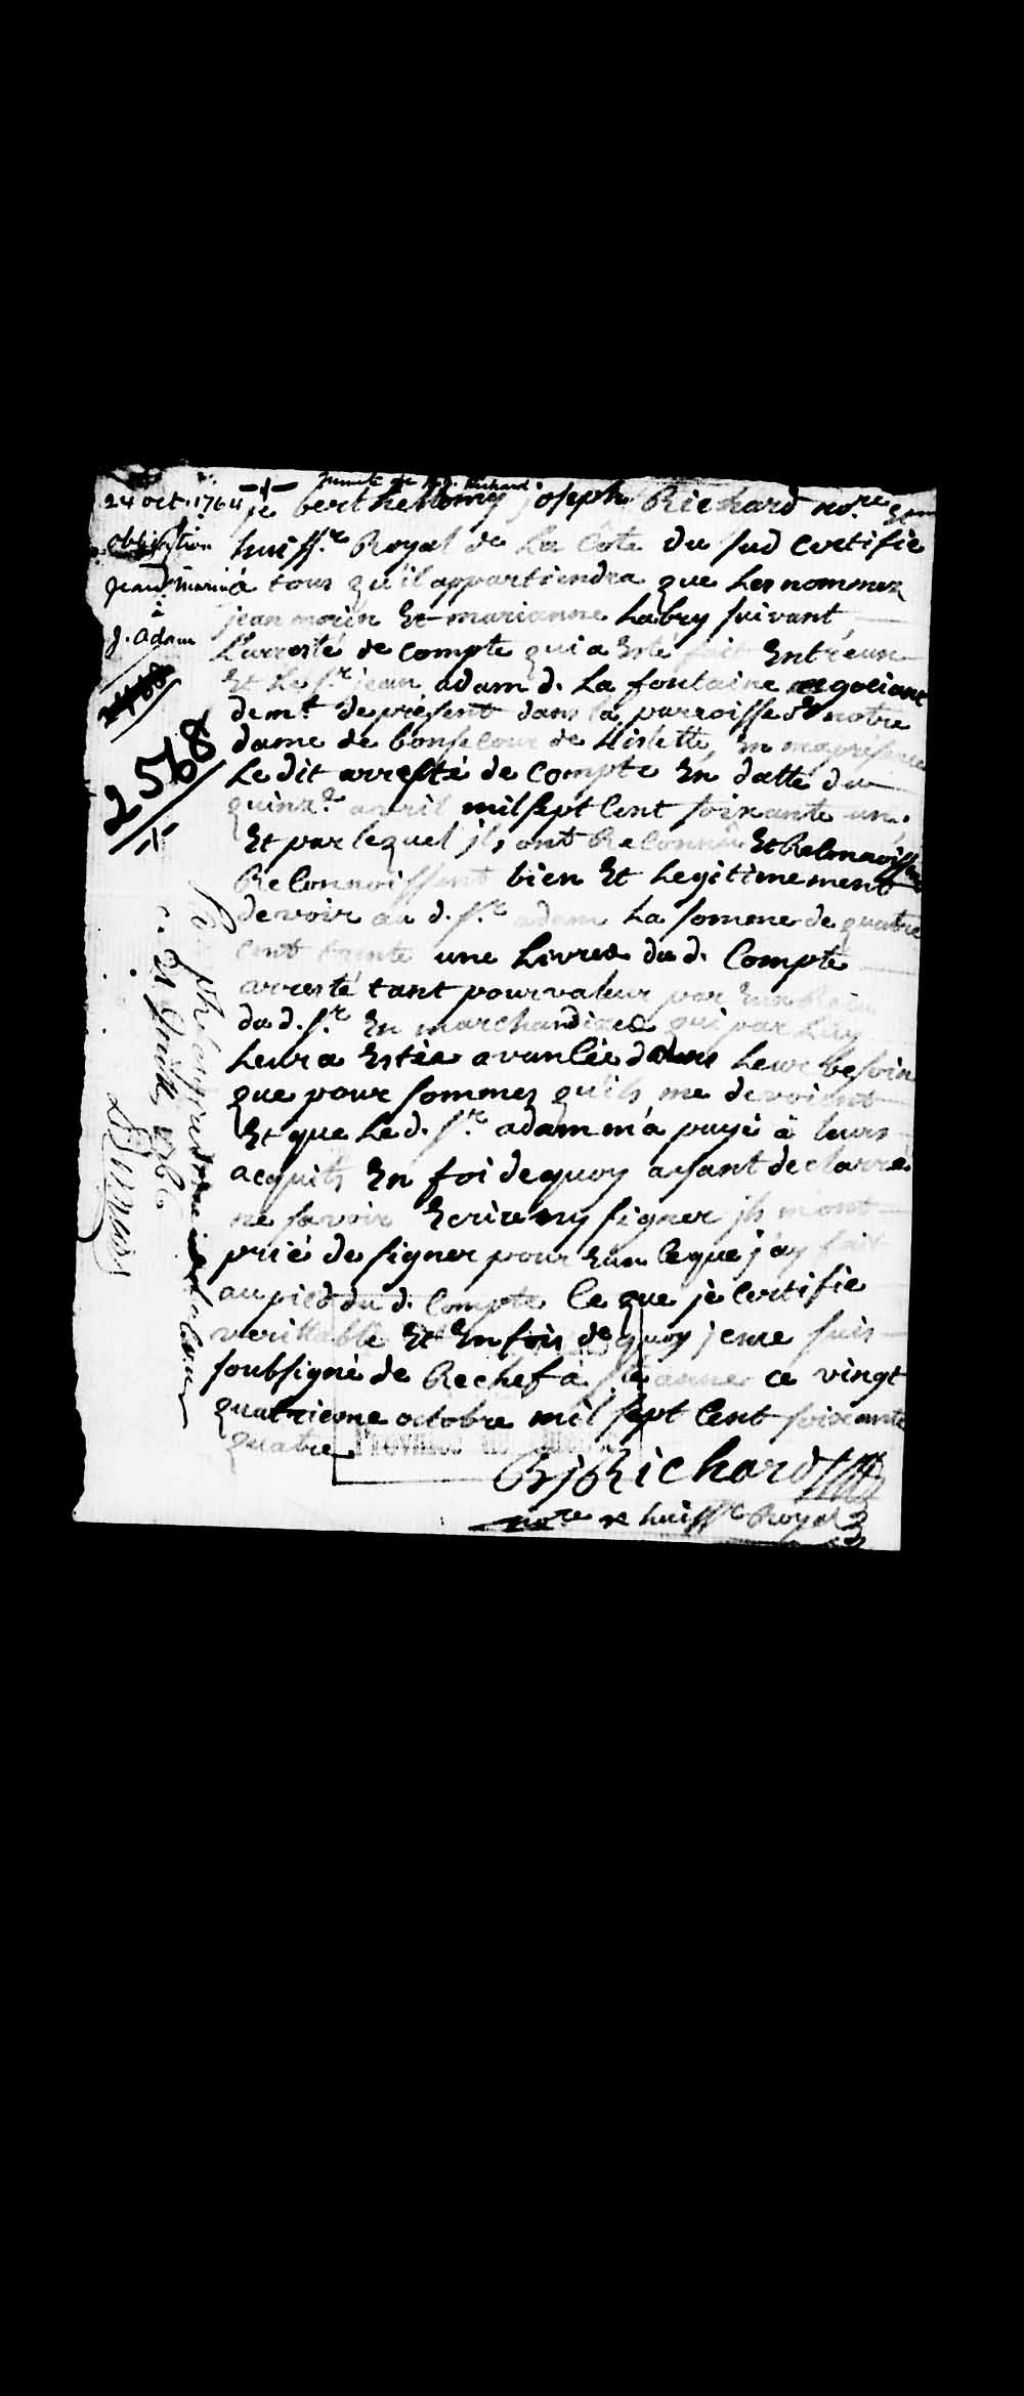 24 oct. 1764
obligation
Jean Marin
à
J. Adam
2568
je berthellemy joseph Richard no.re Et
huiss.r Royal de La Côte du sud certifie
à tous qu'il appartiendra que Les nommez
jean morin Et marianne Labry suivant
L'arresté de compte qui a Esté fait Entreux
Et Le s.r jean adam d. La fontaine negociant
dem.t de présent dans la parroisse de notre
dame de bonsecour de Lislette, en ma présence
Le dit arresté de compte En datte du
quinz.e avril mil sept Cent soixante un.
Et par lequel ils ont Reconnu Et
Reconnoissent bien Et Legitimement
devoir au d. s.r adam La somme de quatre
cent trente une Livres du d. Compte
arresté tant pour valeur par
du d. s.r En marchandizes qui par Luy
Leur a Estée avancée dans Leur besoin
que pour sommes qu'ils me devoient
Et que Le d. s.r adam m'a payé à leurs
acquits En foi de quoy ayant declarré
ne savoir Ecrire ny signer ils m'ont
prié de signer pour Eux Ce que j'ay fait
au pied du d. Compte Ce que je certifie
verittable Et En fois de quoy je me suis
soubsigné de Rechef à ste anne ce vingt
quatrieme octobre mil sept Cent soixante
quatre
B j Richard
no.re & huiss.r Royal